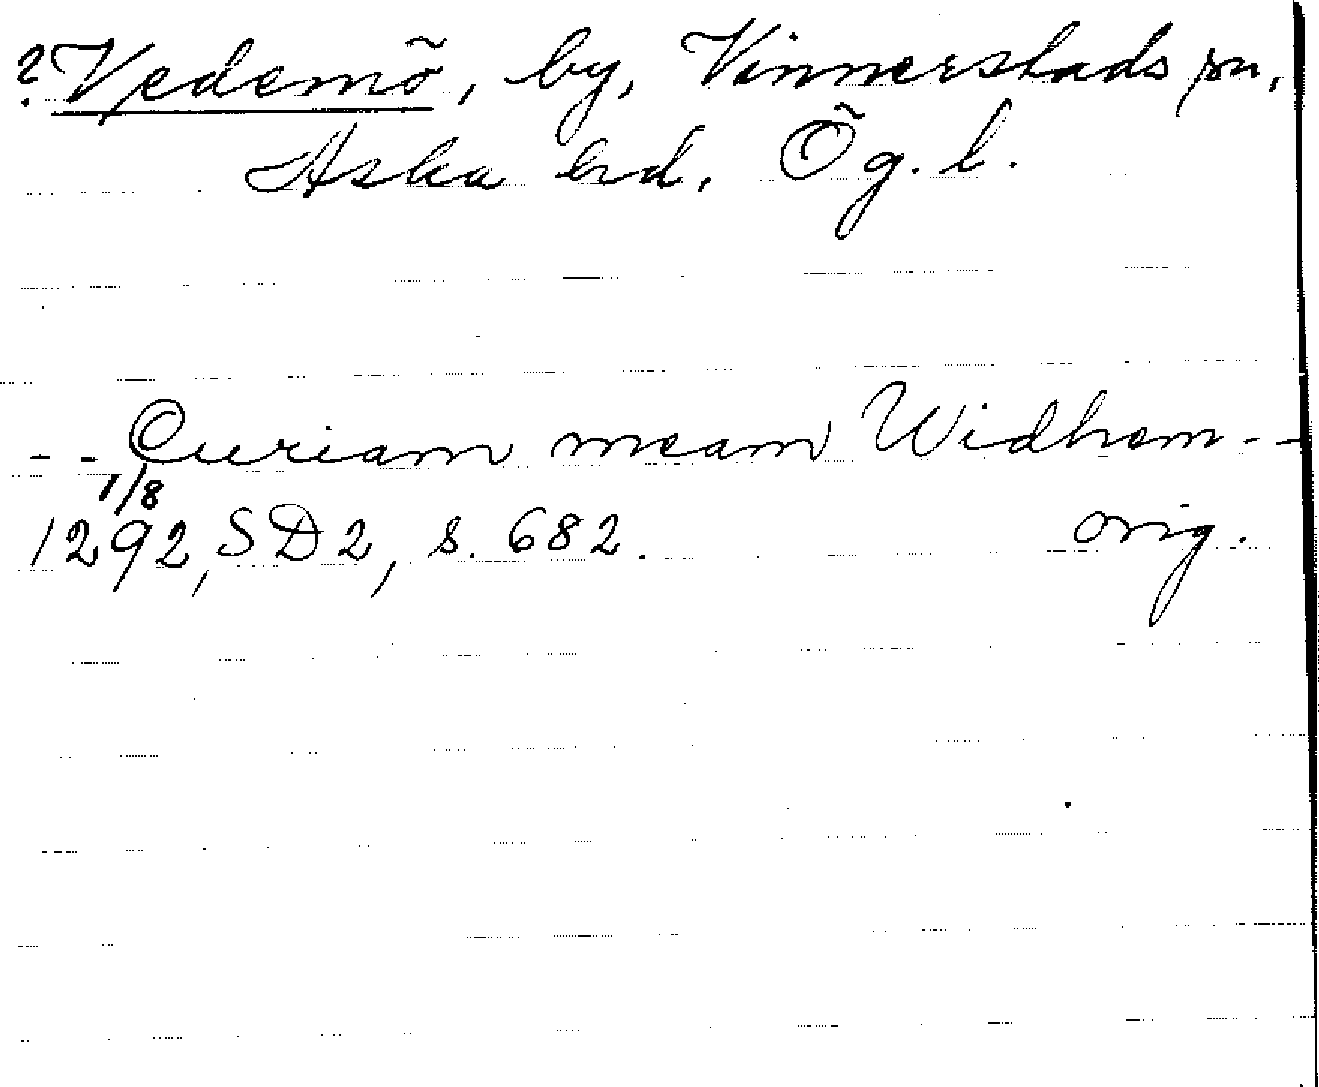 ? Vedemö, by, Vinnerstads sn,
Aska hd, Ög. l.
- - Curiam meam Widhem - -
1/8
1292, SD 2, s. 682. orig.